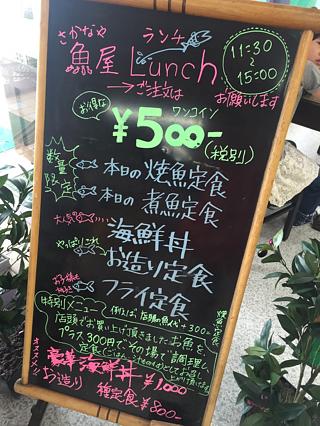 さかなや ランチ
魚屋 Lunch
→ご注文は
11:30
~
15:00
お願いします
お得な ワンコイン
¥500-
(税別)
数量限定
本日の焼魚定食
本日の煮魚定食
大人気 海鮮丼
やっぱりこれ お造り定食
お子様も フライ定食
特別メニュー
例えば 店頭の魚代+300=焼魚定食
店頭でお買い上げ頂きましたお魚を、
プラス300円でその場で調理し、
定食
オススメ!!
豪華海鮮丼 ¥1,000
お造り 種定食¥800-